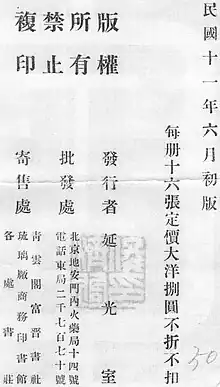 民國十一年六月初版
每册十六張定價大洋捌圓不折不扣
版權所有
禁止複印
發行者延光室
批發處
北京地安門內火藥局十四號
電話東局二千七百七十號
寄售處
青雲閣富晉書社
琉璃廠商務印書館
各處書莊
50